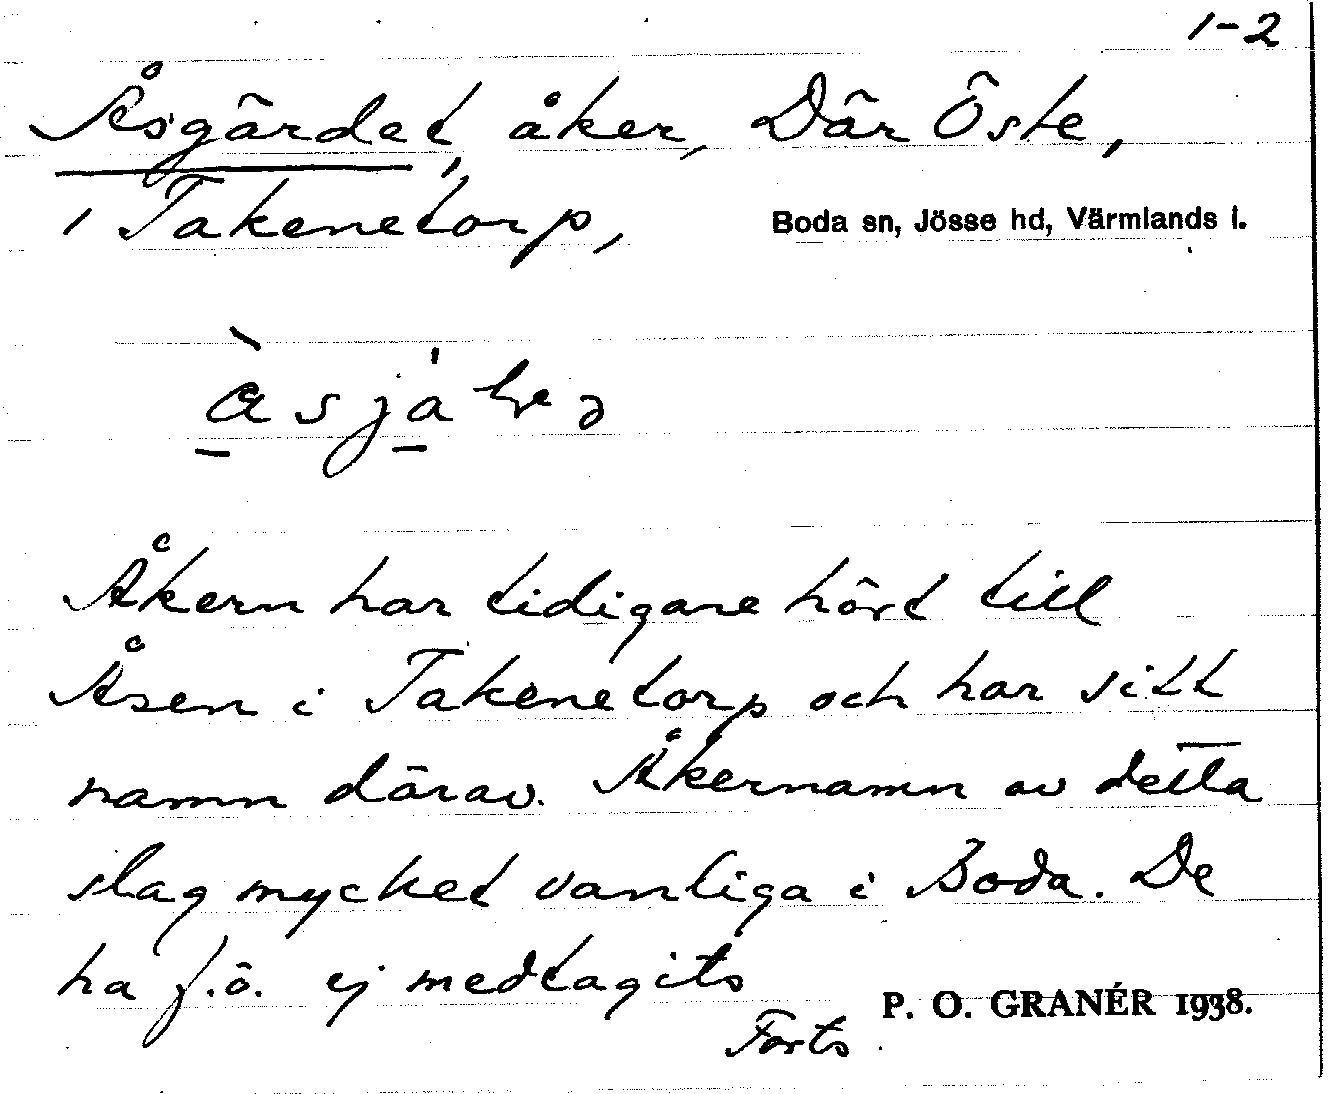 1-2
Åsgärdet, åker, Där Öste,
i Takenetorp, Boda sn, Jösse hd, Värmlands l.
Åkern har tidigare hört till
Åsen i Takenetorp och har sitt
namn därav. Åkernamn av detta
slag mycket vanliga i Boda. De
ha f.ö. ej medtagits
Forts. P. O. GRANÉR 1938.